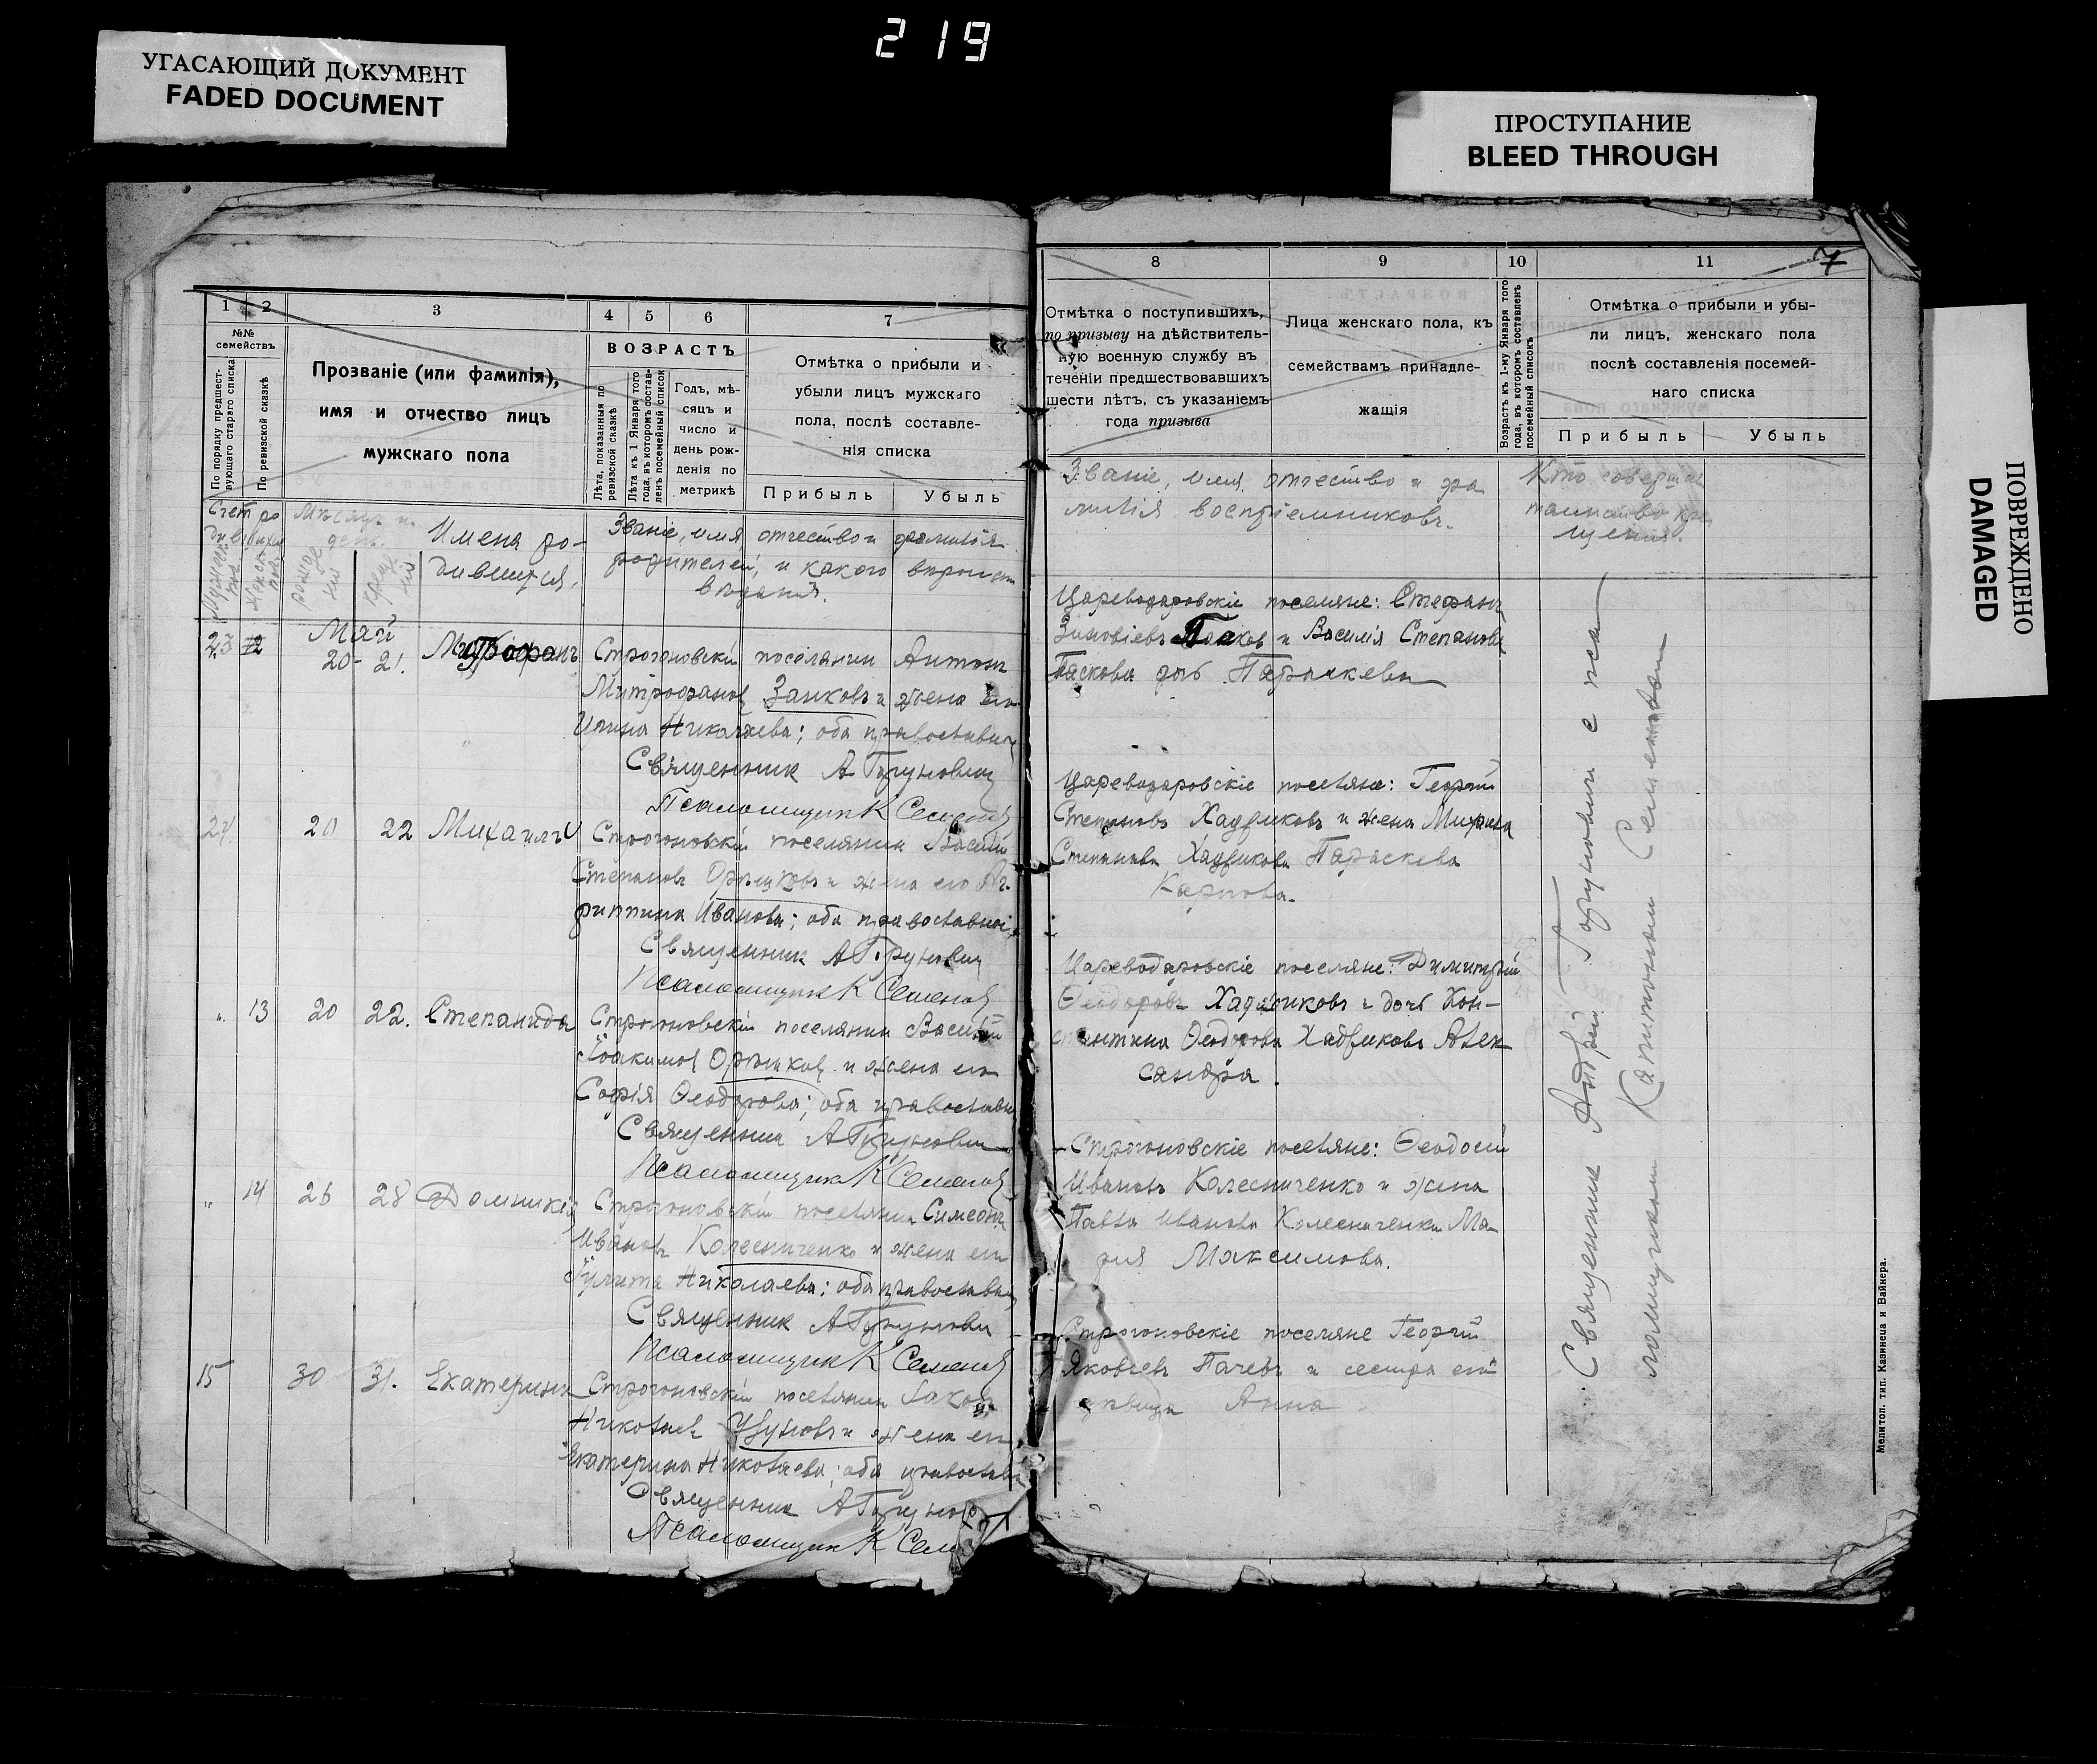 219
УГАСАЮЩИЙ ДОКУМЕНТ
FADED DOCUMENT
ПРОСТУПАНИЕ
BLEED THROUGH
ПОВРЕЖДЕНО
DAMAGED
1 2 3 4 5 6 7
№№ семействъ
По порядку предшествующаго стараго списка
По ревизской сказкѣ
Прозваніе (или фамилія),
имя и отчество лицъ
мужскаго пола
ВОЗРАСТЪ
Лѣта, показанныя по ревизской сказкѣ
Лѣта къ 1 Января того года, въ которомъ составленъ посемейный списокъ
Годъ, мѣ-
сяцъ и
число и
день рож-
денія по
метрикѣ
Отмѣтка о прибыли и
убыли лицъ мужскаго
пола, послѣ составле-
нія списка
Прибыль Убыль
Счет ро
Мѣсяцъ и
день.
Имена ро-
дившихся.
Званіе, имя, отчество и фамилія
родителей, и какого вѣроис
23 12 Май
20 - 21. Митрофанъ
Строгоновскій поселянин Антонъ
Митрофановъ Занковъ и жена его
Ирина Николаева; оба православны
Священник А Горунович
Псаломщик К Семенов
24. 20 22 Михаилъ
Строгоновскій поселянин Василій
Степановъ Орѣшковъ и жена его Аг-
риппина Иванова; оба православны
Священник А Горунович
Псаломщик К Семенов
" 13 20 22. Степанида
Строгоновскій поселянин Василій
Іоакимов Орѣшков и жена его
Софія Ѳеодорова; оба православны
Священник А Горунович
Псаломщик К Семенов
" 14 26 28 Домникія
Строгоновскій поселянин Симеонъ
Ивановъ Колесниченко и жена его
Іулита Николаева; оба православны
Священник А Горунович
Псаломщик К Семенов
15 30 31. Екатерина
Строгоновскій поселянин Іаков
Николаев Узуновъ и жена его
Екатерина Николаева; оба православны
Священник А Горунов
Псаломщик К Семе
8 9 10 11 7
Отмѣтка о поступившихъ,
по призыву на дѣйствитель-
ную военную службу въ
теченіи предшествовавшихъ
шести лѣтъ, съ указаніемъ
года призыва
Лица женскаго пола, къ
семействамъ принадле-
жащія
Возрастъ къ 1-му Января того года, въ которомъ составленъ посемейный списокъ
Отмѣтка о прибыли и убы-
ли лицъ, женскаго пола
послѣ составленія посемей-
наго списка
Прибыль Убыль
Званіе, имя, отчество и фа
милія воспріемниковъ.
Кто совершал
таинство кре
щенія.
Цареводаровскіе поселяне: Стефанъ
Зиновіевъ Пасков и Василія Степанова
Паскова дочь Параскева
Цареводаровскіе поселяне: Георгій
Степановъ Хаджиковъ и жена Мирона
Степанова Хаджикова Параскева
Карпова.
Цареводаровскіе поселяне: Димитрій
Ѳеодоровъ Хаджиковъ и дочь Кон-
стантина Ѳеодорова Хаджикова Алек
сандра.
Строгоновскіе поселяне: Ѳеодосій
Ивановъ Колесниченко и жена
Павла Иванова Колесниченки Ма-
рия Максимова.
Строгоновскіе поселяне Георгій
Яковлевъ Пачевъ и сестра его
дѣвица Анна.
Священник Андрей Горунович с пса
ломщиком Капитоном Семеновым
Мелитоп. тип. Казинеца и Вайнера.